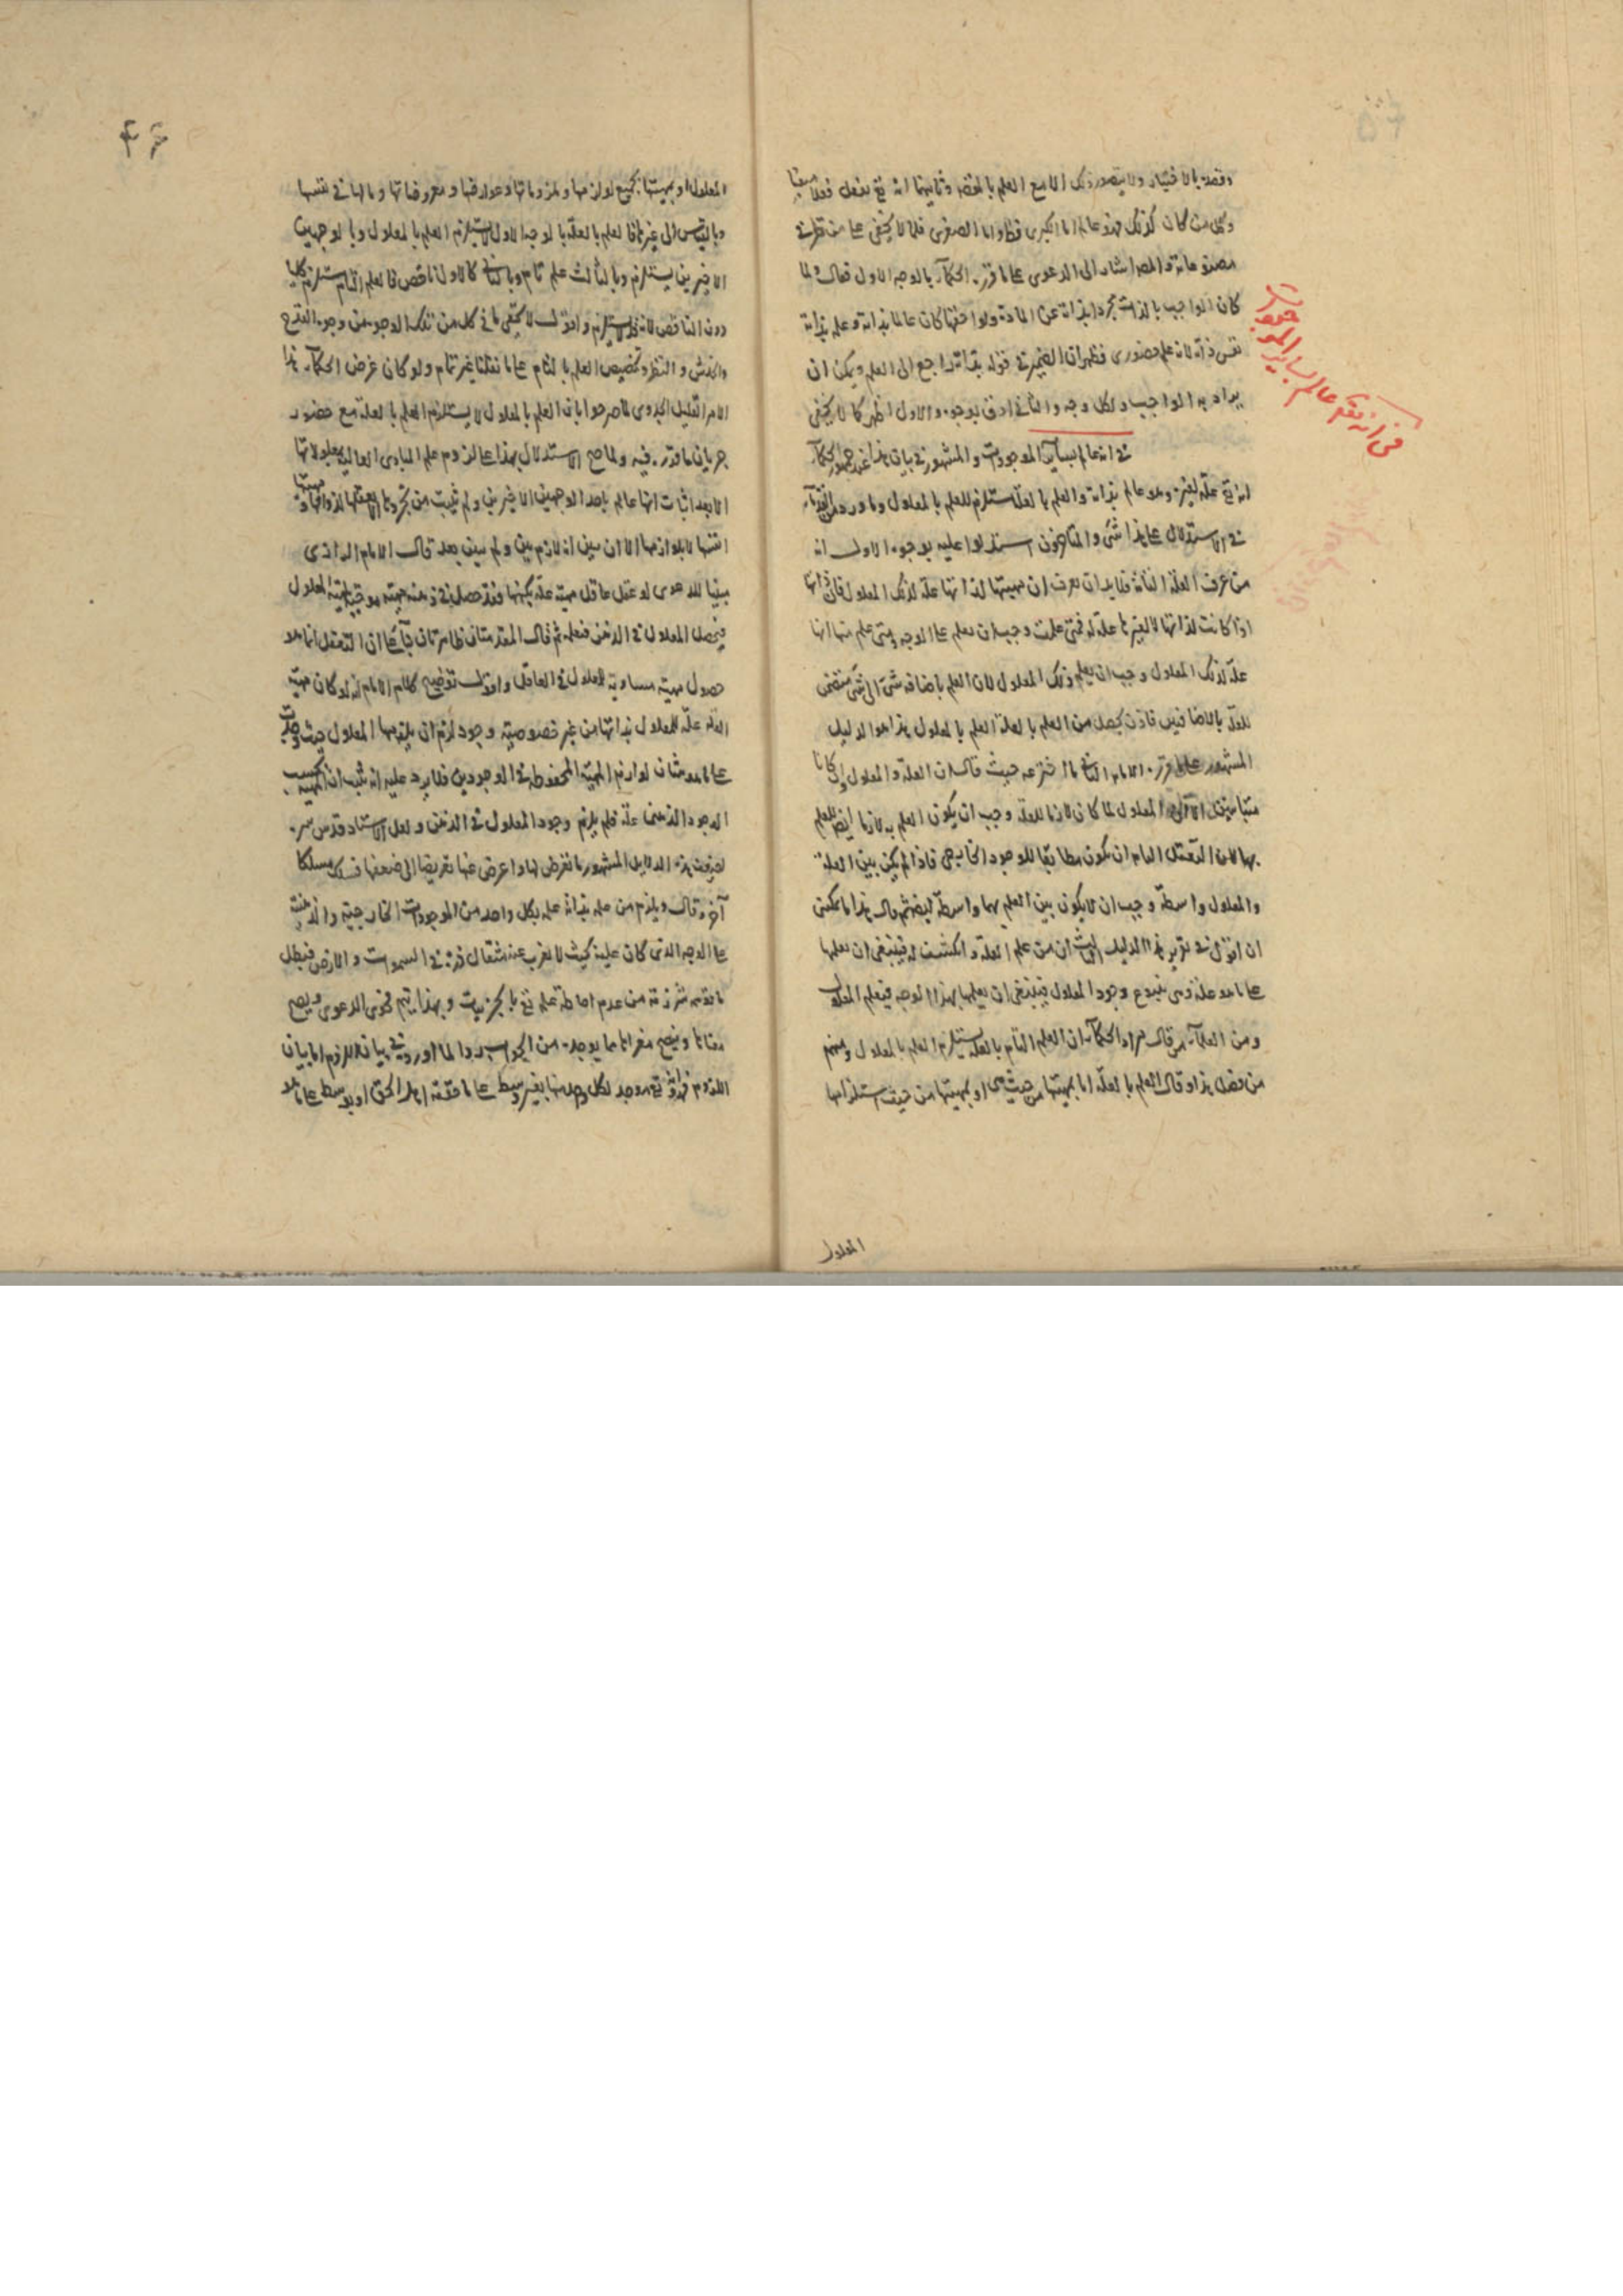 وقصد بالاختيار ولا يتصور ذلك الا مع العلم بالمقصد وثانيهما انه تع يفعل فعلا متقنا
وكل من كان كذلك فهو عالم اما الكبرى فظ واما الصغرى فلما لا يخفى على من نظر في
مصنوعاته والمص اشار الى الدعوى على ما قرره الحكماء بالوجه الاول فقال ولما
كان الواجب بالذات مجردا بذاته عن المادة ولواحقها كان عالما بذاته وعلمه بذاته
نفس ذاته لانه علم حضورى فظهر ان الضمير في قوله بذاته راجع الى العلم ويمكن ان
يراد به الواجب ولكل وجه والثانى ادق بوجوه والاول اظهر كما لا يخفى
في انه عالم بساير الموجودات والمشهور في بيان هذا عند جمهور الحكماء
انه تع علة لغيره وهو عالم بذاته والعلم بالعلة مستلزم للعلم بالمعلول وما ورد من القدماء
في الاستدلال على هذا شئ والمتاخرون استدلوا عليه بوجوه الاول انه
من عرف العلة التامة فلا بد ان يعرف ان مهيتها لذاتها علة لذلك المعلول فان ذاتها
اذا كانت لذاتها لا لغيرها علة له فمتى علمت وجب ان تعلم على الوجه ومتى علم منها انها
علة لذلك المعلول وجب ان يعلم ذلك المعلول لان العلم باضافة شئ الى شئ متضمن
للعلم بالمضافين فاذن يحصل من العلم بالعلة العلم بالمعلول هذا هو الدليل
المشهور على ما قرره الامام الثانى ما اخترعه حيث قال ان العلة والمعلول وان كانا
متباينين الا ان المعلول لما كان لازما للعلة وجب ان يكون العلم به لازما ايضا للعلم
بها لان التعقل التام ان يكون مطابقا للوجود الخارجى فاذا لم يكن بين العلة
والمعلول واسطة وجب ان لا يكون بين العلم بهما واسطة ايضا ثم قال هذا ما يمكننى
ان اقول في تقرير هذا الدليل الثالث ان من علم العلة وانكشفت له فينبغى ان يعلمها
على ما هو علة وهى ينبوع وجود المعلول فينبغى ان يعلمها بهذا الوجه فيعلم المعلول
ومن العلماء من قال مراد الحكماء ان العلم التام بالعلة يستلزم العلم بالمعلول ومنهم
من فصل هذا وقال العلم بالعلة اما بمهيتها من حيث هى او بمهيتها من حيث استلزامها
المعلول
في انه تع عالم بساير الموجودات
٤٦
المعلول او بمهيتها بجميع لوازمها وملزوماتها وعوارضها ومعروضاتها وما لها في نفسها
وبالقياس الى غيرها فالعلم بالعلة بالوجه الاول لا يستلزم العلم بالمعلول وبالوجهين
الاخيرين يستلزم وبالثالث علم تام وبالثانى كالاول ناقص فالعلم التام يستلزم كليا
دون الناقص لانه قد لا يستلزم واقول لا يخفى ما في كل من تلك الوجوه من وجوه القدح
والخدش والنظر وتخصيص العلم بالتام على ما نقلنا غير تمام ولو كان غرض الحكماء هذا
الامر القليل الجدوى لما صرحوا بان العلم بالمعلول لا يستلزم العلم بالعلة مع حضور
جريان ما قرره فيه ولما صح الاستدلال بهذا على لزوم علم المبادى العالية بمعلولاتها
الا بعد اثبات انها عالم باحد الوجهين الاخيرين ولم يثبت من تجردها الا تعقلها لذواتها ومهيتها
انفسها لا بلوازمها الا ان يبين انه لازم بين ولم يبين بعد قال الامام الرازى
مبينا للدعوى لو عقل عاقل مهية علة بكنهها فقد حصل في ذهنه مهية موجبة لمهية المعلول
فيحصل المعلول في الذهن فتعلمه ثم قال المقدمتان ظاهرتان بناء على ان التعقل انما هو
حصول مهية مساوية للمعلول في العاقل واقول توضيح كلام الامام انه لو كان مهية
العلة علة للمعلول بذاتها من غير خصوصية وجود لزم ان يلزمها المعلول حيث وجدت
على ما هو شان لوازم المهية المحفوظة في الوجودين فلا يرد عليه انه ثبت ان المهية بحسب
الوجود الذهنى علة فلم يلزم وجود المعلول في الذهن ولعل الاستاد قدس سره
لضعف هذه الدلايل المشهورة ما تعرض لها واعرض عنها تعريضا الى ضعفها فسلك مسلكا
آخر وقال ويلزم من علمه بذاته علمه بكل واحد من الموجودات الخارجية والذهنية
على الوجه الذى كان عليه بحيث لا يعزب عنه مثقال ذرة في السموات والارض فبطل
ما توهمه شرذمة من عدم احاطة علمه تع بالجزئيات وبهذا يتم فحوى الدعوى ويصح
معناها ويتضح مغزاها مما يوجد من الجواب بدوا لما اورد في بيان اللزوم اما بيان
اللزوم فهو انه تع موجد لكل وجد منها بغير وسط على ما حققه اهل الحق او بوسط على ما هو